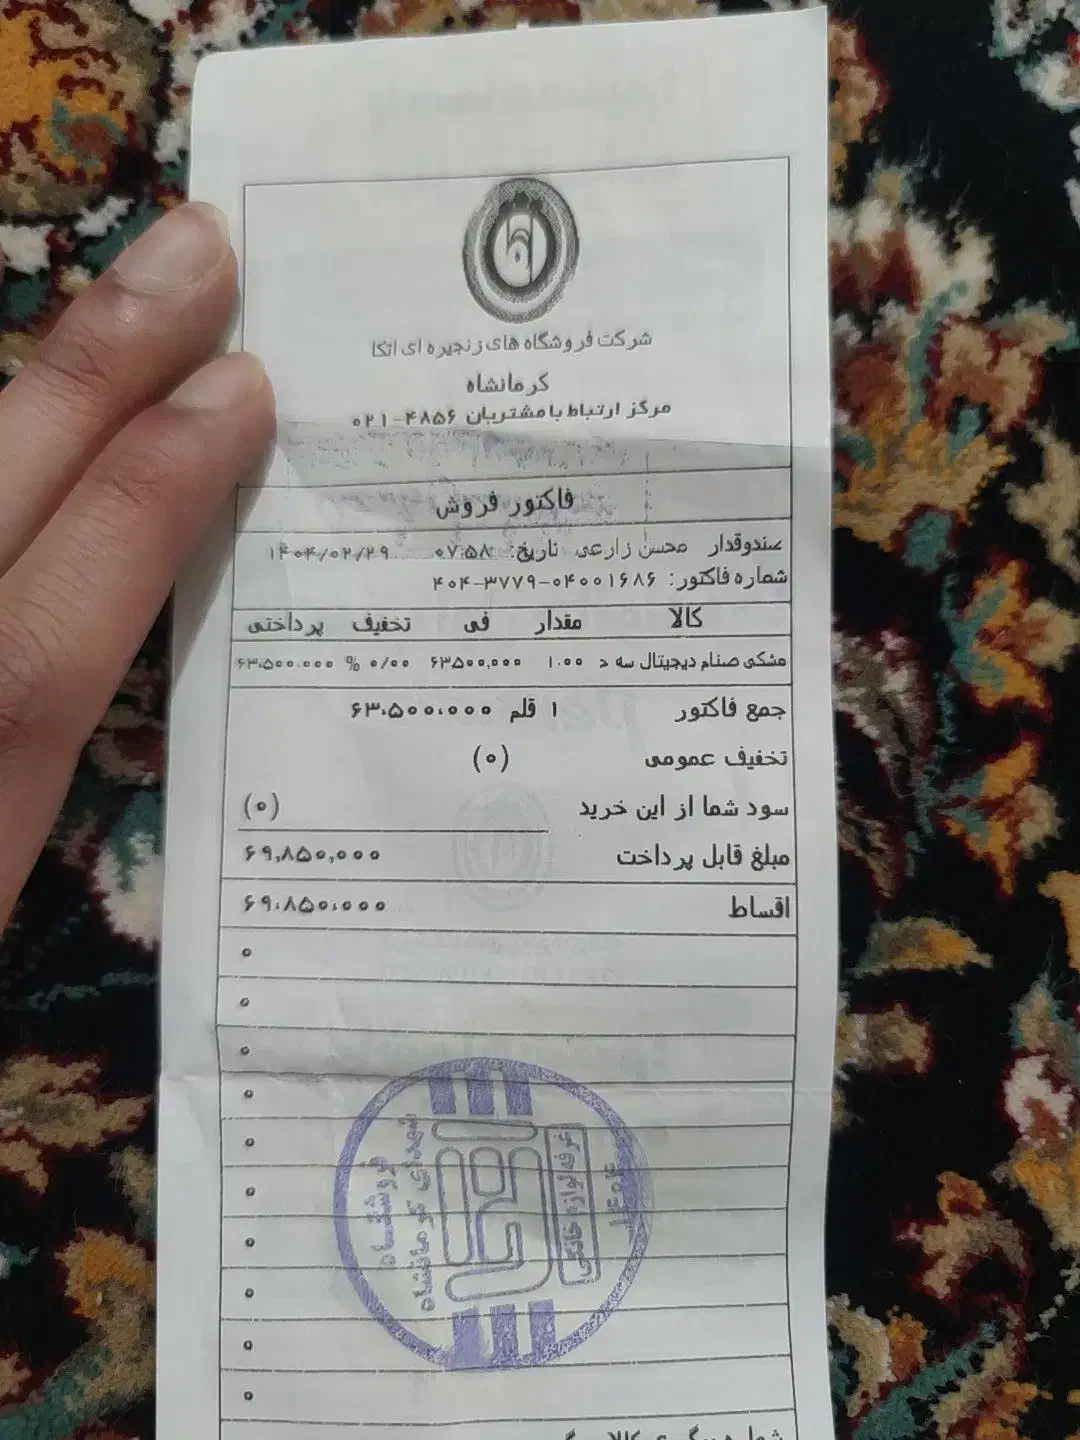 شرکت فروشگاه های زنجیره ای اتکا
کرمانشاه
مرکز ارتباط با مشتریان ۴۸۵۶-۰۲۱
فاکتور فروش
صندوقدار محسن زارعی تاریخ: ۰۷:۵۸ ۱۴۰۴/۰۲/۲۹
شماره فاکتور: ۴۰۴-۳۷۷۹-۰۴۰۰۱۶۸۶
کالا مقدار فی تخفیف پرداختی
مشکی صنام دیجیتال سه د ۱.۰۰ ۶۳۵۰۰,۰۰۰ ۰/۰۰ % ۶۳,۵۰۰,۰۰۰
جمع فاکتور ۱ قلم ۶۳,۵۰۰,۰۰۰
تخفیف عمومی (۰)
سود شما از این خرید (۰)
مبلغ قابل پرداخت ۶۹,۸۵۰,۰۰۰
اقساط ۶۹,۸۵۰,۰۰۰
۰
۰
۰
۰
۰
۰
۰
۰
۰
۰
فروشگاه
شهدای کرمانشاه
غرفه لوازم خانگی
۱۴۰۴